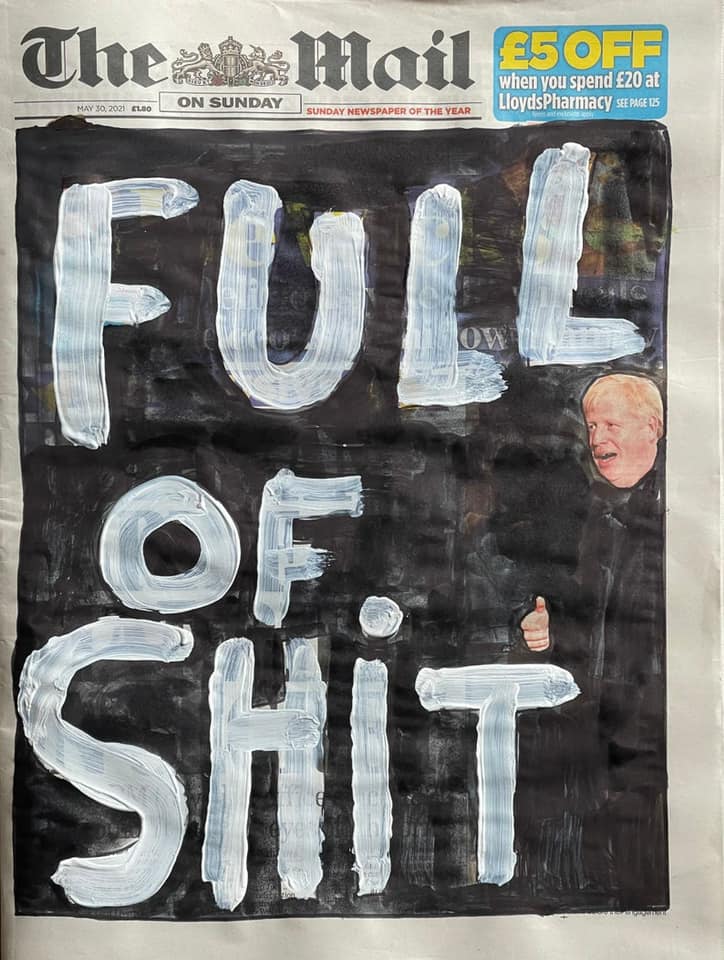 The Mail
ON SUNDAY
MAY 30, 2021 £1.80
SUNDAY NEWSPAPER OF THE YEAR
£5 OFF
when you spend £20 at
LloydsPharmacy SEE PAGE 125
FULL
OF
SHiT